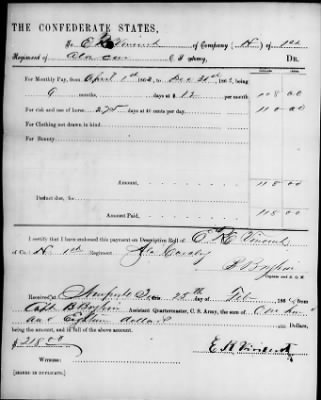 THE CONFEDERATE STATES,
To E K Vincent of Company (H) of 1st
Regiment of Ala Cav C. S. Army, DR.
For Monthly Pay, from April 1st 1862, to Dec 31st 186
9 months, days at $12 per month 108 00
For risk and use of horse 275 days at 40 cents per day. 110 00
For Clothing not drawn in kind
For Bounty
Amount 218 00
Deduct due, for
Amount Paid, 218 00
I certify that I have endorsed this payment on Descriptive Roll of E K Vincent
of Co. H 1st Regiment Ala Cavalry
Captain and A. Q. M.
Received at this 25th day of Feb 186
Capt B Assistant Quartermaster, C. S. Army, the sum of
and Eighteen dollars Dollars,
being the amount, and in full of the above amount.
$218 00
E K Vincent
Witness:
[SIGNED IN DUPLICATE.]